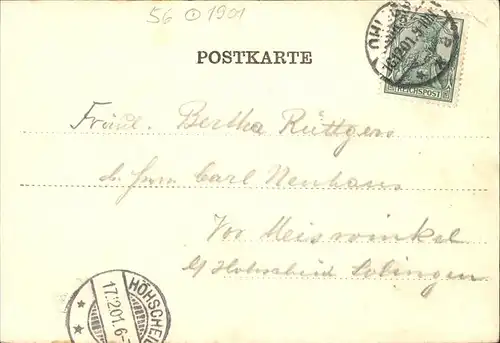 56 ⊙ 1901
POSTKARTE
REICHSPOST
16.12.01.
Fräul. Bertha Rüttgers
b. Herrn Carl Neuhaus
Vor Meiswinkel
b/ Höhscheid Solingen
HÖHSCHEID
17.12.01.6-